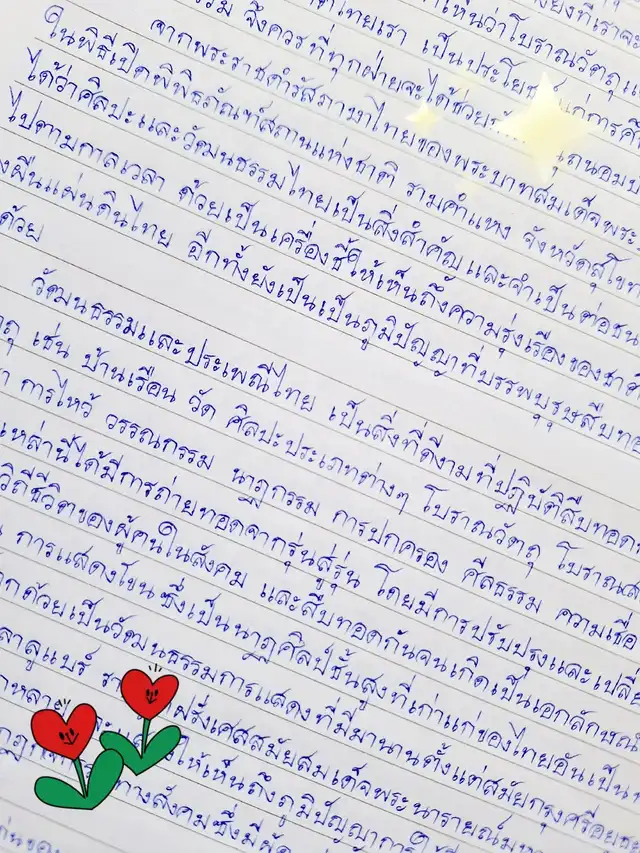 เห็นว่าโบราณวัตถุแ
รรม จึงควรที่ทุกฝ่ายจะได้ช่วย
ไทยเรา เป็นประโยช แก่การศึ
จากพระราชดำรัสภาษาไทยของพระบาทสมเด็จพระ
ในพิธีเปิดพิพิธภัณฑ์สถานแห่งชาติ รามคำแหง จังหวัดสุโขท
ได้ว่าศิลปะและวัฒนธรรมไทยเป็นสิ่งสำคัญและจำเป็นต่อชน
ไปตามกาลเวลา ด้วยเป็นเครื่องชี้ให้เห็นถึงความรุ่งเรืองของชาติ
ผืนแผ่นดินไทย อีกทั้งยังเป็นเป็นภูมิปัญญาที่บรรพบุรุษสืบทอ
ด้วย
วัฒนธรรมและประเพณีไทย เป็นสิ่งที่ดีงามที่ปฏิบัติสืบทอด
ถุ เช่น บ้านเรือน วัด ศิลปะประเภทต่างๆ โบราณวัตถุ โบราณส
การไหว้ วรรณกรรม นาฏกรรม การปกครอง ศีลธรรม ความเชื่อ
เหล่านี้ได้มีการถ่ายทอดจากรุ่นสู่รุ่น โดยมีการปรับปรุงและเปลี่
วิถีชีวิตของผู้คนในสังคม และสืบทอดกันจนเกิดเป็นเอกลักษณ์
การแสดงโขน ซึ่งเป็นนาฏศิลป์ชั้นสูงที่เก่าแก่ของไทยอันเป็น
ด้วยเป็นวัฒนธรรมการแสดงที่มีมานานตั้งแต่สมัยกรุงศรีอยุธ
ลาลูแบร์ รา ฝรั่งเศสสมัยสมเด็จพระนารายณ์ม
ให้เห็นถึงภูมิปัญญาการ
ทางสังคมซึ่งมี